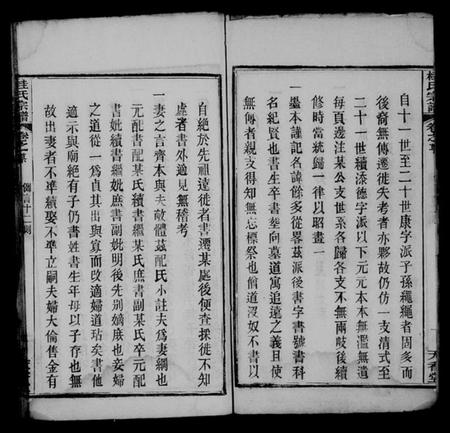 自十一世至二十世康字派子孫繩繩者固多而
後裔無傳遷徙失考者亦夥故仍仿一支清式至
二十一世續濤德字派以下元元本本無濫無遺
每頁邊注某公支世系各歸各支不無兩歧後續
修時當統歸一律以昭畫一
一繼本謹記名諱餘多從畧茲派後書字書號書科
名紀賢也書生卒書塟向墓道寓追遠之義且使
無傳者親支得知無忘標祭也偷道沒奴不書以
自絕於先祖遠徙者書遷某處後便查採徙不知
處者書外遊見無稽考
一妻之言齊本與夫敵體茲配氏小註夫為妻綱也
元配書配某氏續書繼某氏庶書副某氏卒元配
書妣續書繼妣庶書副妣明後先別嫡庶也妾婦
之道從一為貞其出與算而改適婦道玷矣書他
適示與廟絕有子仍書姓書生年母以子存也無
故出妻者不準續娶不準立嗣夫婦大倫售金有
桂氏宗譜
卷之首